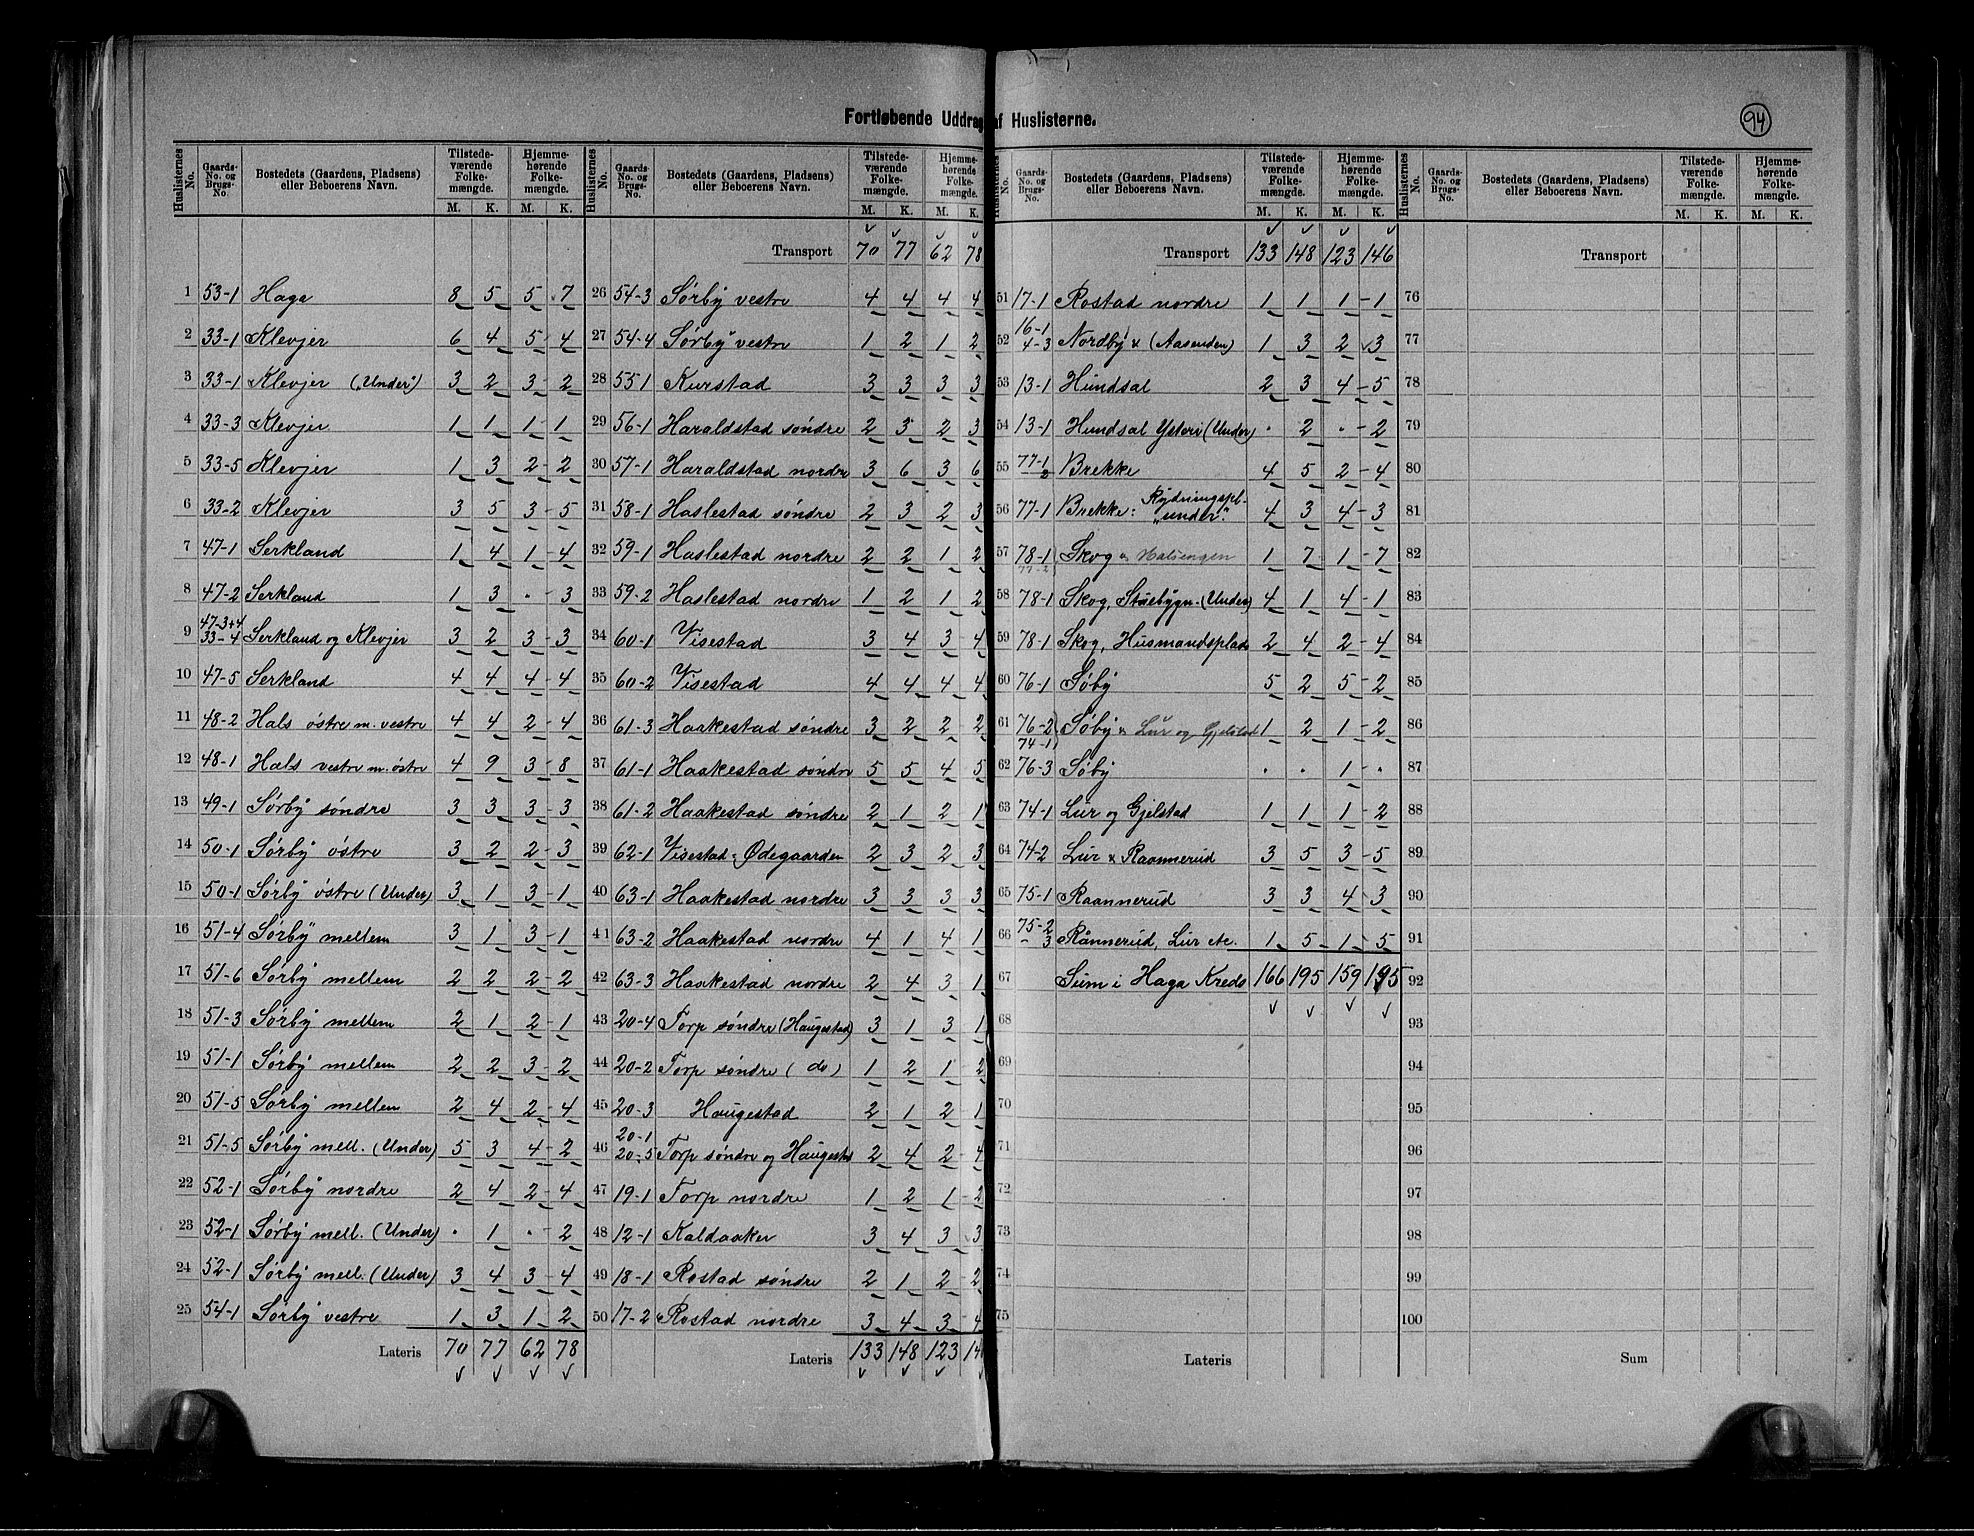 94
Fortløbende Uddrag af Huslisterne.
Huslisternes No. Gaards-No. og Brugs-No. Bostedets (Gaardens, Pladsens) eller Beboerens Navn. Tilstedeværende Folkemængde. M. K. Hjemmehørende Folkemængde. M. K.
1 53-1 Haga 8 5 5 7
2 33-1 Klevjer 6 4 5 4
3 33-1 Klevjer („Under") 3 2 3 2
4 33-3 Klevjer 1 1 1 1
5 33-5 Klevjer 1 3 2 2
6 33-2 Klevjer 3 5 3 5
7 47-1 Serkland 1 4 1 4
8 47-2 Serkland 1 3 · 3
9 47-3+4 33-4 Serkland og Klevjer 3 2 3 3
10 47-5 Serkland 4 4 4 4
11 48-2 Hals østre m. vestre 4 4 2 4
12 48-1 Hals vestre m. østre 4 9 3 8
13 49-1 Sørby søndre 3 3 3 3
14 50-1 Sørby østre 3 2 2 3
15 50-1 Sørby østre (Under) 3 1 3 1
16 51-4 Sørby mellem 3 1 3 1
17 51-6 Sørby mellem 2 2 2 2
18 51-3 Sørby mellem 2 1 2 1
19 51-1 Sørby mellem 2 2 3 2
20 51-5 Sørby mellem 2 4 2 4
21 51-5 Sørby mell. (Under) 5 3 4 2
22 52-1 Sørby nordre 2 4 2 4
23 52-1 Sørby mell. (Under) · 1 · 2
24 52-1 Sørby mell. (Under) 3 4 3 4
25 54-1 Sørby vestre 1 3 1 2
Lateris 70 77 62 78
Huslisternes No. Gaards-No. og Brugs-No. Bostedets (Gaardens, Pladsens) eller Beboerens Navn. Tilstedeværende Folkemængde. M. K. Hjemmehørende Folkemængde. M. K.
Transport 70 77 62 78
26 54-3 Sørby vestre 4 4 4 4
27 54-4 Sørby vestre 1 2 1 2
28 55 1 Kurstad 3 3 3 3
29 56-1 Haraldstad søndre 2 3 2 3
30 57-1 Haraldstad nordre 3 6 3 6
31 58-1 Haslestad søndre 2 3 2 3
32 59-1 Haslestad nordre 2 2 1 2
33 59-2 Haslestad nordre 1 2 1 2
34 60-1 Visestad 3 4 3 4
35 60-2 Visestad 4 4 4 4
36 61-3 Haakestad søndre 3 2 2 2
37 61-1 Haakestad søndre 5 5 4 5
38 61-2 Haakestad søndre 2 1 2 1
39 62-1 Visestad: Ødegaarden 2 3 2 3
40 63-1 Haakestad nordre 3 3 3 3
41 63-2 Haakestad nordre 4 1 4 1
42 63-3 Haakestad nordre 2 4 3 1
43 20-4 Torp søndre (Haugestad) 3 1 3 1
44 20-2 Torp søndre ( do ) 1 2 1 2
45 20-3 Haugestad 2 1 2 1
46 20-1 20-5 Torp søndre og Haugestad 2 4 2 4
47 19-1 Torp nordre 1 2 1 2
48 12-1 Kaldaaker 3 4 3 3
49 18-1 Rostad søndre 2 1 2 2
50 17-2 Rostad nordre 3 4 3 4
Lateris 133 148 123 14
Huslisternes No. Gaards-No. og Brugs-No. Bostedets (Gaardens, Pladsens) eller Beboerens Navn. Tilstedeværende Folkemængde. M. K. Hjemmehørende Folkemængde. M. K.
Transport 133 148 123 146
51 17-1 Rostad nordre 1 1 1 1
52 16-1 4-3 Nordby & (Aasenden) 1 3 2 3
53 13-1 Hundsal 2 3 4 5
54 13-1 Hundsal Ysteri (Under) · 2 · 2
55 77-1 2 Brekke 4 5 2 4
56 77-1 Brekke: Rydningspl. „under". 4 3 4 3
57 78-1 77-2 Skog & 1 7 1 7
58 78-1 Skog, Stuebygn. (Under) 4 1 4 1
59 78-1 Skog, Husmandsplads 2 4 2 4
60 76-1 Søby 5 2 5 2
61 76-2 74-1 Søby & Lur og Gjelstad 1 2 1 2
62 76-3 Søby · · 1 ·
63 74-1 Lur og Gjelstad 1 1 1 2
64 74-2 Lur & Raannerud 3 5 3 5
65 75-1 Raannerud 3 3 4 3
66 75-2 - 3 Rånnerud, Lur etc. 1 5 1 5
67 Sum i Haga Kreds 166 195 159 195
68
69
70
71
72
73
74
75
Lateris
Huslisternes No. Gaards-No. og Brugs-No. Bostedets (Gaardens, Pladsens) eller Beboerens Navn. Tilstedeværende Folkemængde. M. K. Hjemmehørende Folkemængde. M. K.
Transport
76
77
78
79
80
81
82
83
84
85
86
87
88
89
90
91
92
93
94
95
96
97
98
99
100
Sum